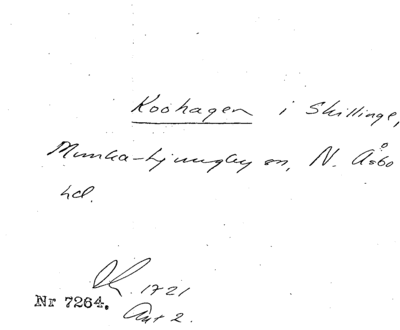 Koohagen i Skillinge,
Munka-Ljungby sn, N. Åsbo
hd.
1721
Nr 7264. Akt 2.